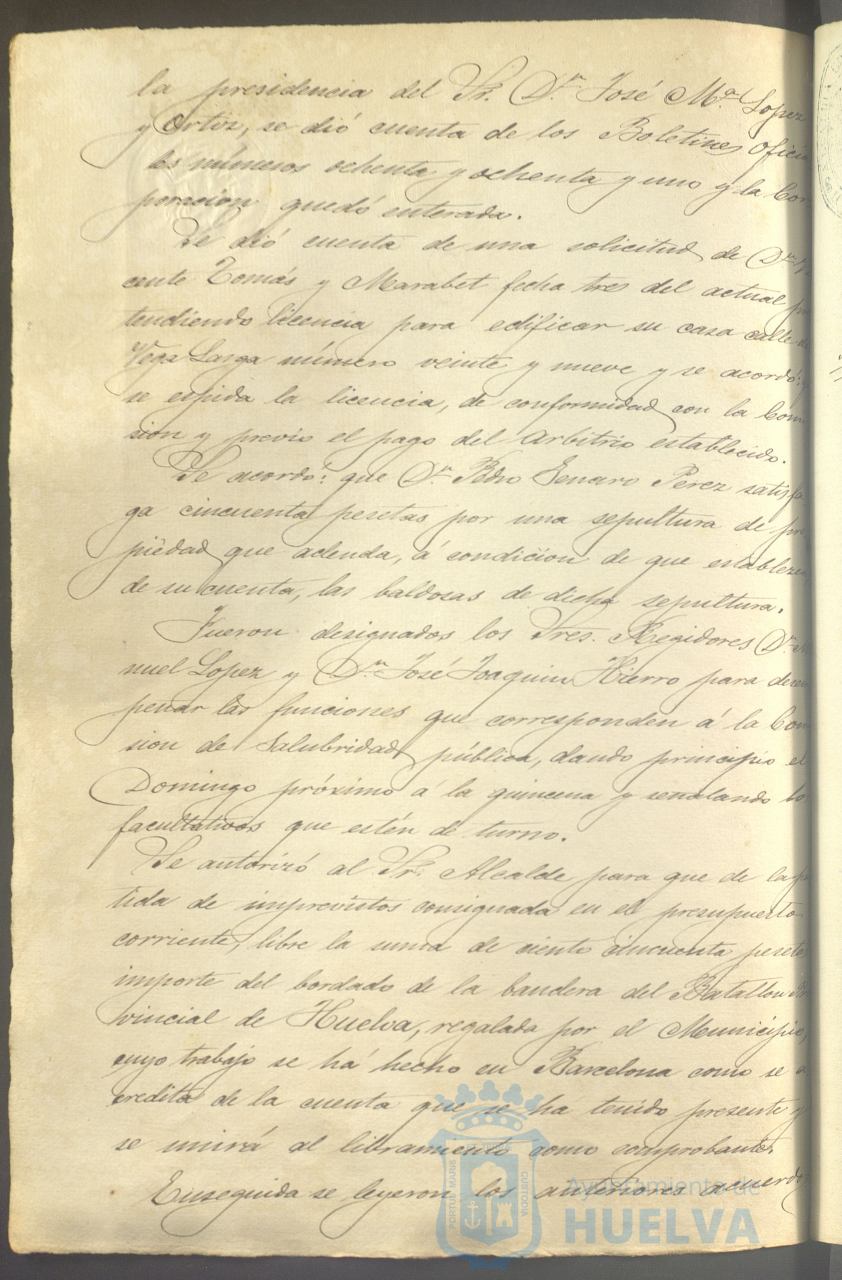 la presidencia del Sr. Dn. José Ma. Lopez
y Ortiz, se dió cuenta de los Boletines Oficia
les números ochenta y ochenta y uno y la Cor
poracion quedó enterada.
Se dió cuenta de una solicitud de Dn. Vi
cente Tomás y Marabet fecha tres del actual pre
tendiendo licencia para edificar su casa calle de
Vega Larga número veinte y nueve y se acordó:
se espida la licencia, de conformidad con la Comi
sion y previo el pago del arbitrio establecido.
Se acordó: que Dn. Pedro Genaro Perez satisfa
ga cincuenta pesetas por una sepultura de pro
piedad que adeuda, á condicion de que establezca
de su cuenta, las baldosas de dicha sepultura.
Fueron designados los Sres. Regidores Dn. Ma
nuel Lopez y Dn. José Joaquin Hierro para desem
peñar las funciones que corresponden á la Comi
sion de Salubridad pública, dando principio el
Domingo próximo á la quincena y señalando lo
facultativos que estén de turno.
Se autorizó al Sr. Alcalde para que de la par
tida de imprevistos consignada en el presupuesto
corriente, libre la suma de ciento cincuenta peseta
importe del bordado de la bandera del Batallon Pro
vincial de Huelva, regalada por el Municipio,
cuyo trabajo se há hecho en Barcelona como se a
credita de la cuenta que se ha tenido presente y
se unirá al libramiento como comprobante.
Enseguida se leyeron los anteriores acuerdo
PORTUS MARIS
CUSTODIA
Ayuntamiento de
HUELVA